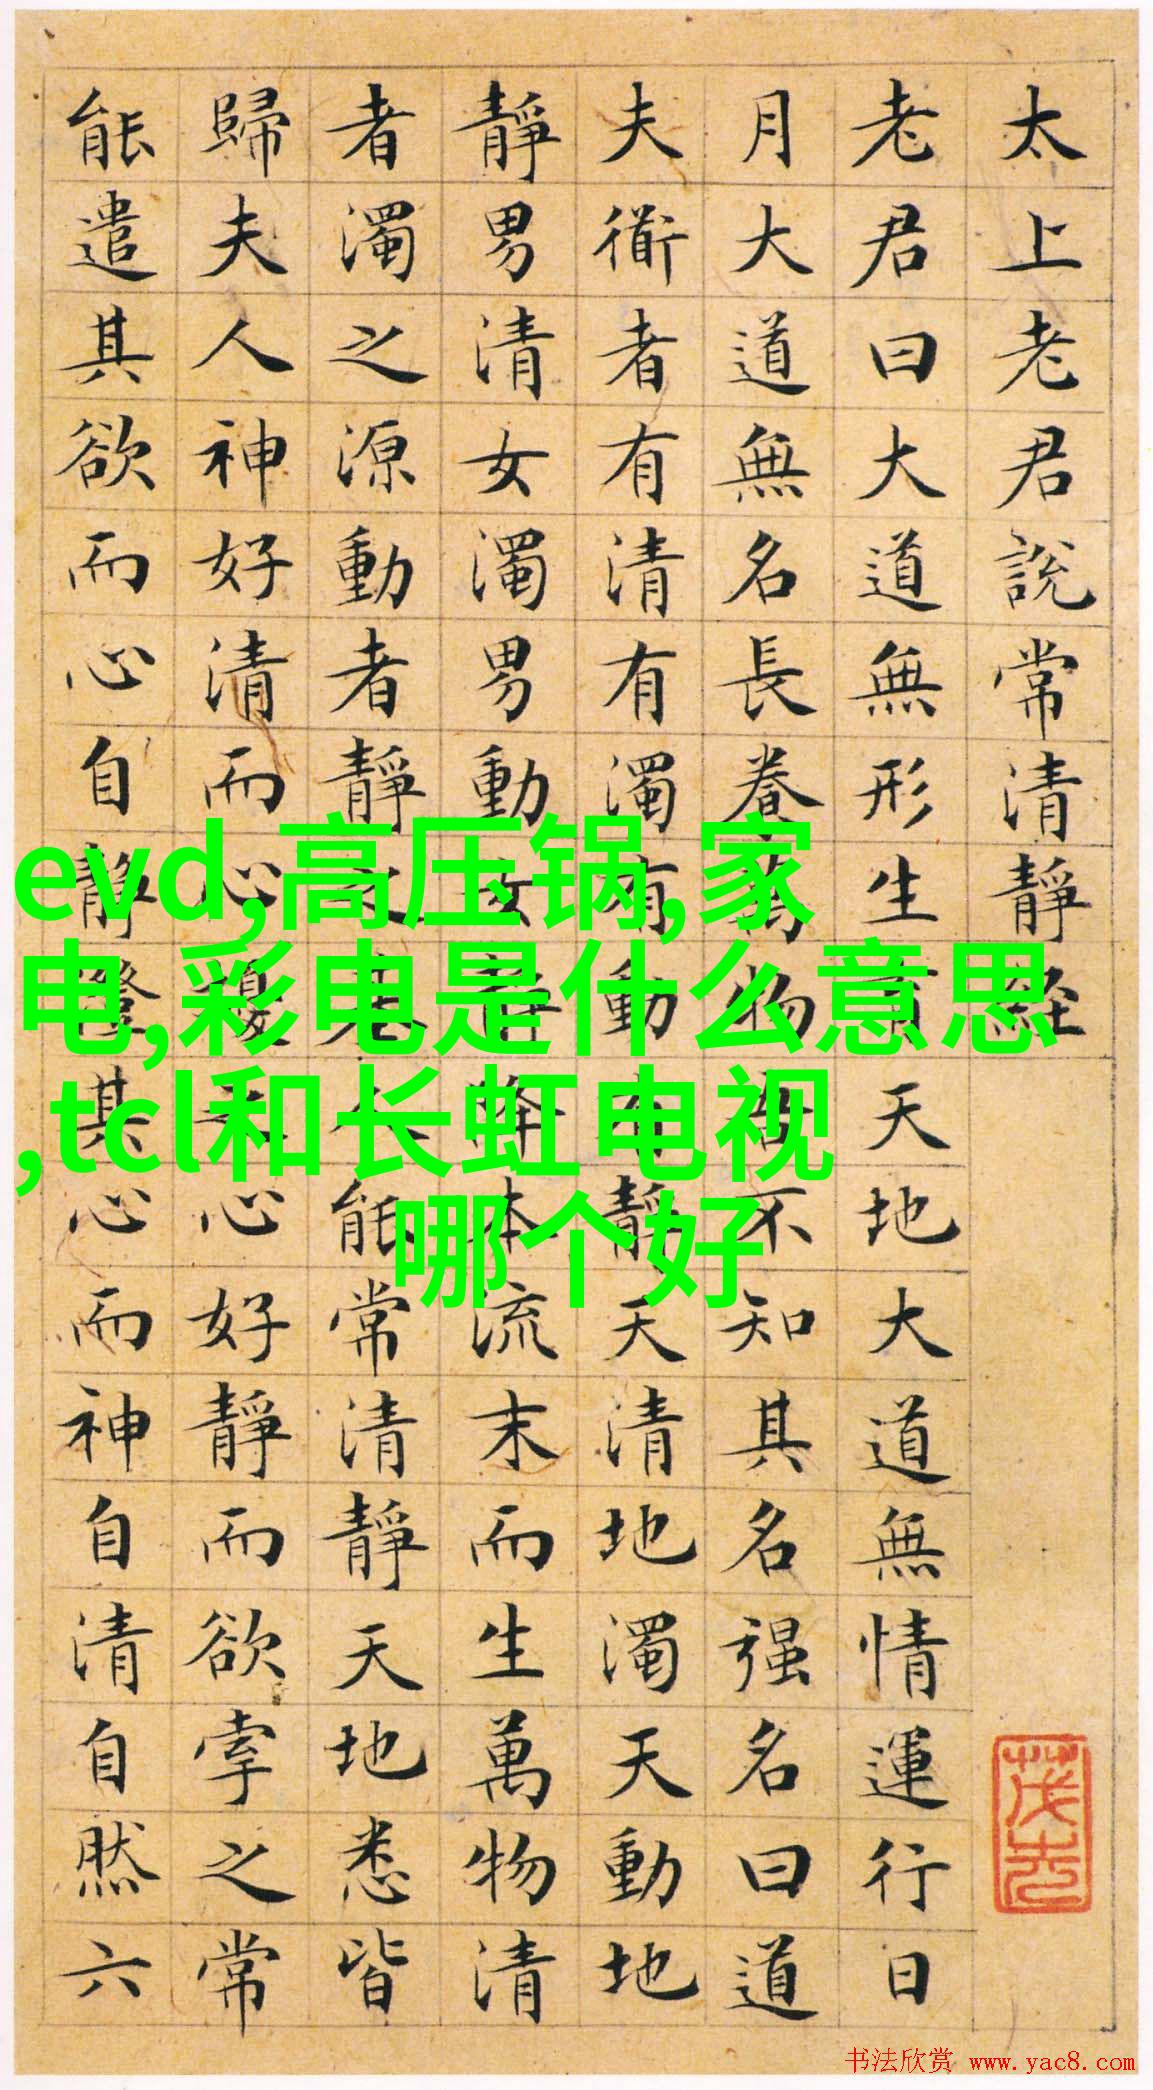 太上老君說常清靜經
老君曰大道無形生育天地大道無情運行日
月大道無名長養萬物吾不知其名强名曰道
夫衜者有清有濁有動有靜天清地濁天動地
靜男清女濁男動女靜降本流末而生萬物清
者濁之源動者靜之基人能常清靜天地悉皆
歸夫人神好清而心擾之心好靜而欲牽之常
能遣其欲而心自靜澄其心而神自清自然六
evd,高压锅,家
电,彩电是什么意思
,tcl和长虹电视
哪个好
书法欣赏 www.yac8.com